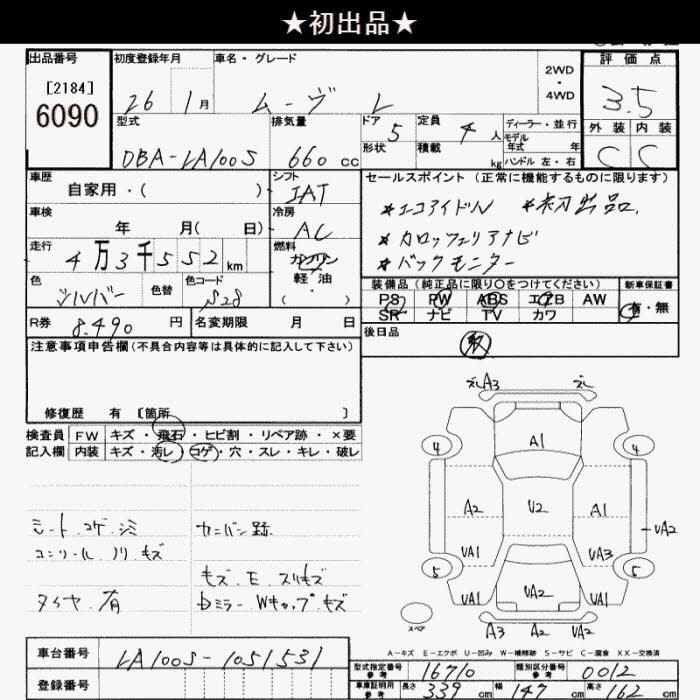 ★初出品★
出品番号
[2184]
6090
初度登録年月
26 1月
車名・グレード
ムーヴ L
2WD
・
4WD
評価点
3.5
外装 内装
C C
型式
DBA-LA100S
排気量
660 cc
ドア 5
形状
定員 4 人
積載 kg
ディーラー・並行
モデル
年式 年
ハンドル 左・右
車歴
自家用・( )
シフト
IAT
車検
年 月( 日)
冷房
AC
走行
4万3千552km
燃料
ガソリン
軽油
( ・ )
色
シルバー
色替
色コード
S28
セールスポイント (正常に機能するものに限ります)
*エコアイドル *初出品.
*カロッツェリアナビ
*バックモニター
装備品 (純正品に限り○をつけてください)
PS PW ABS エアB AW
SR ナビ TV カワ
新車保証書
有・無
R券 8.490 円
名変期限 月 日
後日品
注意事項申告欄(不具合内容等は具体的に記入して下さい)
修復歴 有 [箇所 ]
検査員 FW キズ・飛石・ヒビ割・リペア跡・×要
記入欄 内装 キズ・汚レ・コゲ・穴・スレ・キレ・破レ
シート.コゲ.シミ
カンバン跡
コンソール ノリ キズ
キズ.E.スリキズ
タイヤ.有
bミラー Wキャップ.キズ
A3
4 A1 4
A2 U2 A1
UA1 UA3 UA2
5 5
UA1 UA2 UA1
スペア
A3 A2 UA2
A-キズ E-エクボ U-凹み W-補修跡 S-サビ C-腐食 XX-交換済
車台番号
LA100S-1051531
登録番号
型式指定番号
参考
16710
類別区分番号
参考
0012
車庫証明用
参考
長さ 339 cm
幅 147 cm
高さ 162 cm